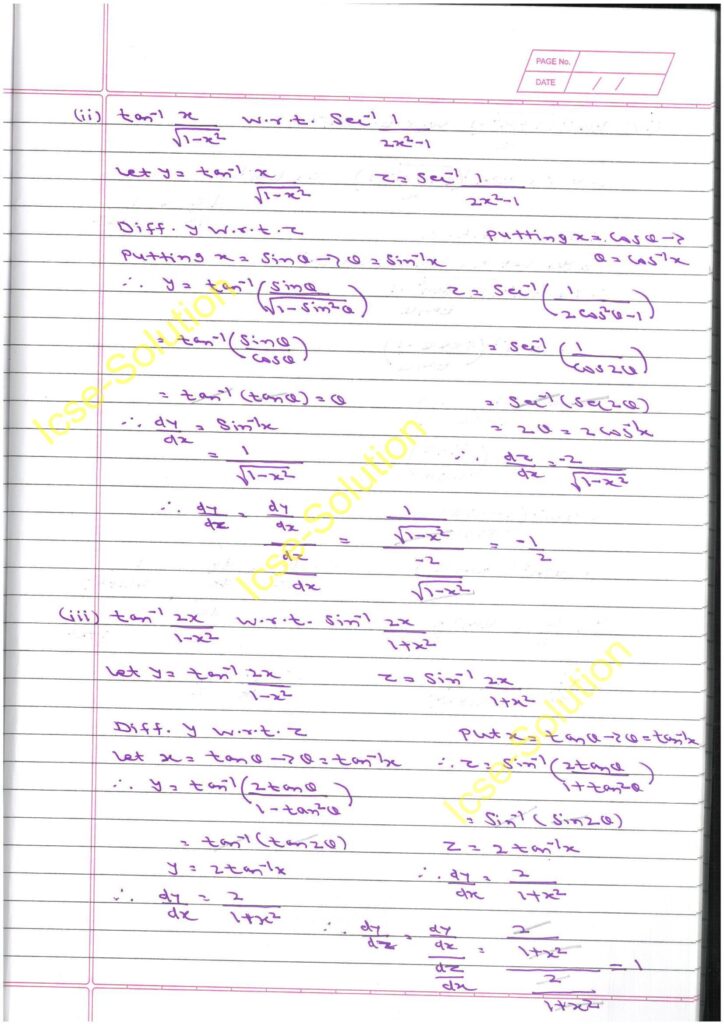 PAGE No.
DATE / /
(ii) tan⁻¹ x/√(1-x²) w.r.t. Sec⁻¹ 1/(2x²-1)
Let y = tan⁻¹ x/√(1-x²) z = Sec⁻¹ 1/(2x²-1)
Diff. y w.r.t. z Putting x = Cosθ →
Putting x = Sinθ → θ = Sin⁻¹x θ = Cos⁻¹x
∴ y = tan⁻¹(Sinθ/√(1-Sin²θ)) z = Sec⁻¹(1/(2Cos²θ-1))
= tan⁻¹(Sinθ/Cosθ) = Sec⁻¹(1/Cos2θ)
= tan⁻¹(tanθ) = θ = Sec⁻¹(Sec2θ)
∴ dy/dx = Sin⁻¹x = 2θ = 2Cos⁻¹x
= 1/√(1-x²) ∴ dz/dx = -2/√(1-x²)
∴ dy/dz = (dy/dx)/(dz/dx) = (1/√(1-x²))/(-2/√(1-x²)) = -1/2
(iii) tan⁻¹ 2x/(1-x²) w.r.t. Sin⁻¹ 2x/(1+x²)
Let y = tan⁻¹ 2x/(1-x²) z = Sin⁻¹ 2x/(1+x²)
Diff. y w.r.t. z Put x = tanθ → θ = tan⁻¹x
Let x = tanθ → θ = tan⁻¹x ∴ z = Sin⁻¹(2tanθ/(1+tan²θ))
∴ y = tan⁻¹(2tanθ/(1-tan²θ)) = Sin⁻¹(Sin2θ)
= tan⁻¹(tan2θ) z = 2tan⁻¹x
y = 2tan⁻¹x ∴ dy/dx = 2/(1+x²)
∴ dy/dx = 2/(1+x²)
∴ dy/dz = (dy/dx)/(dz/dx) = (2/(1+x²))/(2/(1+x²)) = 1
Icse-Solution
Icse-Solution
Icse-Solution